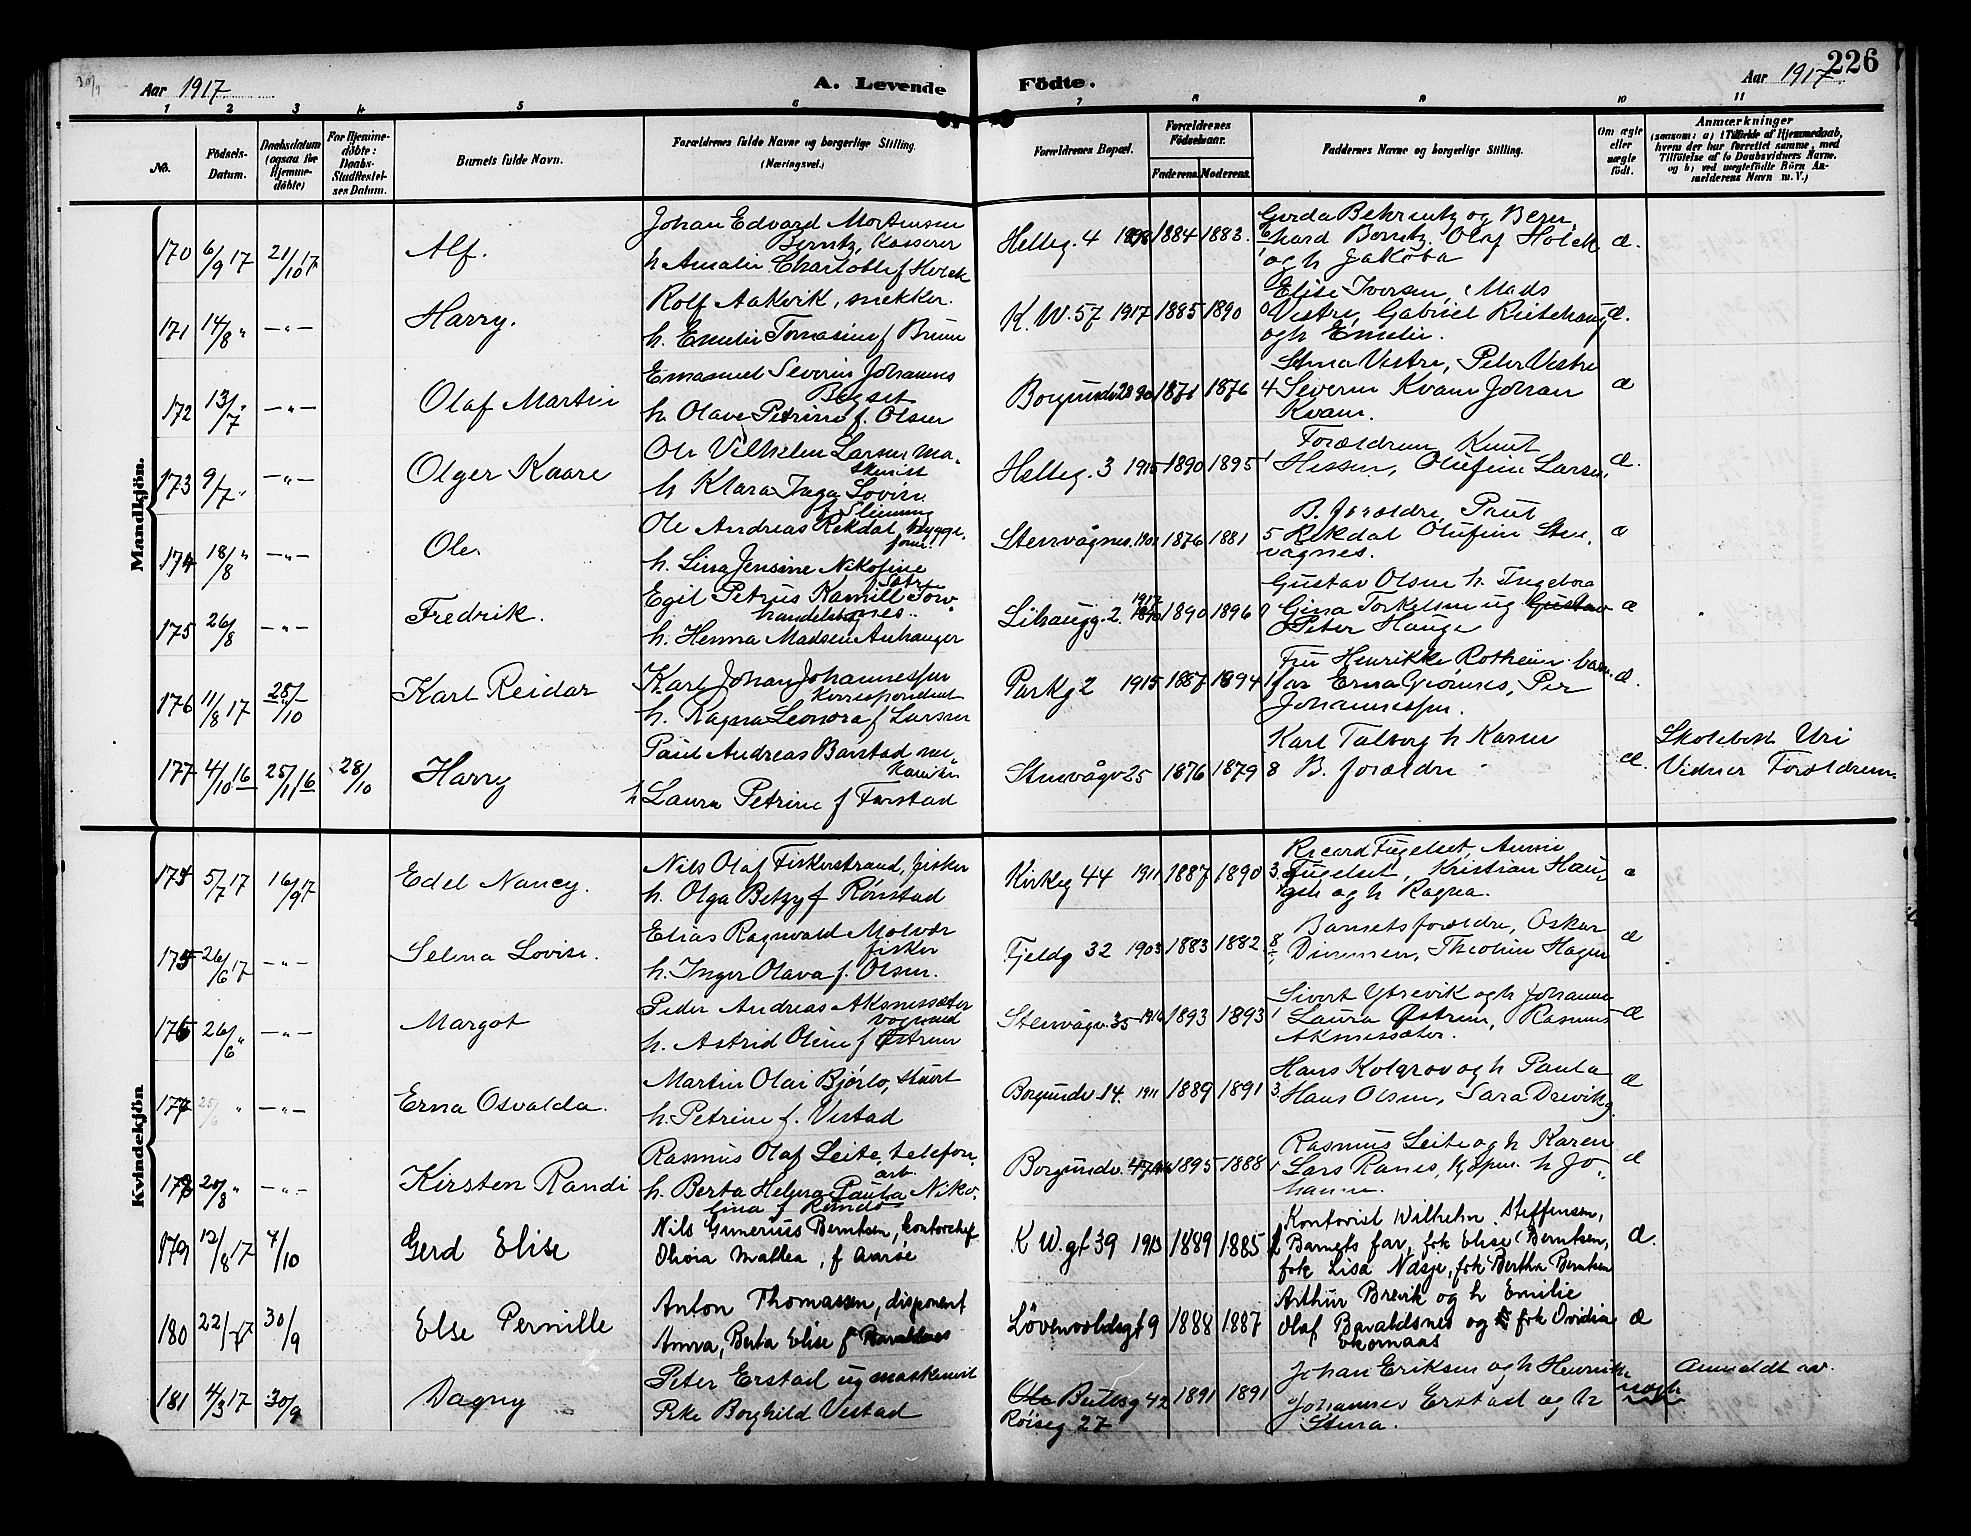 226
Aar 1917
A. Levende
Födte.
Aar 1917
1 2 3 4 5 6 7 8 9 10 11
No.
Födsels-
Datum.
Daabsdatum
(ogsaa for
Hjemme-
döbte)
For Hjemme-
döbte:
Daabs-
Stadfæstel-
ses Datum.
Barnets fulde Navn.
Forældrenes fulde Navne og borgerlige Stilling.
(Næringsvei.)
Forældrenes Bopæl.
Forældrenes
Födselsaar.
Faderens. Moderens.
Faddernes Navne og borgerlige Stilling.
Om ægte
eller
uægte
født.
Anmærkninger
(saasom: a) i Tilfælde af Hjemmedaab,
hvem der har forrettet samme, med
Tilföielse af to Daabsvidners Navne.
og b) ved uægtefödte Börn An-
melderens Navn m. V.)
Mandkjön.
170 6/9 17 21/10 17 Alf.
Johan Edvard Mortensen
Berntz, Kasserer
h Amalie Charlotte f Holck
Helleg. 4 1884 1883.
Gerda Behrentz og
Berntz. Olaf Holck
og h Jakoba
æ.
171 14/8 " —"— Harry.
Rolf Aakvik, snekker.
h. Emelie Tomasine f Bruun
K. W. 57 1917 1885 1890 0
Elise Iversen, Mads
Vestre, Gabriel
og h Emelie.
æ.
172 13/7 " —"— Olaf Martin
Emanuel Severin Johannes
Bigset
h. Olave Petrine f. Olsen
Borgundv 20 1871 1876 4
Stina Vestre, Peter Vestre
Severin Kvam Johan
Kvam.
æ
173 9/7 " —"— Olger Kaare
Ole Vilhelm Larsen ma-
skinist
h Klara Inga Lovise
f Slinning
Helleg. 3 1915 1890 1895 1
Forældrene, Knut
Hessen, Olufine Larsen,
æ.
174 18/8 " —"— Ole
Ole Andreas Rekdal, brygge-
form.
h. Lina Jensine Nikoline
Stenvågnes. 1901 1876 1881 5
B. forældre, Paul
Rekdal Olufine Sten-
vagnes.
æ
175 26/8 —"— Fredrik.
Egil Petrus Kamill Torv-
h. Henna Madsen Anhauger
Lihaugg. 2 1917 1890 1896 0
Gustav Olsen h. Ingebora
Gina Torkelsen ug Gustav
Peter Hauge
æ
176 11/8 17 28/10 Karl Reidar
Karl Johan Johannessen
Korrespondent
h. Ragna Leonora f Larsen
Parkg 2 1915 1887 1894 1
Fru Henrikke Rotheim barnе-
far Erna Gjömnes, Per
Johannessen.
æ.
177 4/10 16 25/11 16 28/10 Harry
Paul Andreas Barstad me-
kaniker
h Laura Petrine f Farstad
Stenvågv 25 1876 1879 8
Karl Talberg h Karen
B. forældre
æ.
Skolebest. Uri
Vidner Forældrene
Kvindekjön
174 5/7 17 16/9 17 Edel Nancy.
Nils Olaf Fiskerstrand, fisker
h. Olga Betzy f Rönstad
Kirkeg 44 1911 1887 1890 3
Ricard Fugelset Aunni
Fugelset, Kristian Hau-
gen og h Ragna.
æ
175 26/6 17 —"— Selma Lovise.
Elias Ragnvald Molvær
fisker
h. Inger Olava f. Olsen.
Fjeldg 32 1903 1883 1882 8
Barnets forældre, Oskar
Theoline Hagen
æ
176 26/6 " —"— Margot
Peder Andreas Aksnessæter
vognmd
h. Astrid Oline f Östrem
Stenvågv. 35 1916 1893 1893 1
Sivert Ytrevik og h Johanne
Laura Östrem, Rasmus
Aknessæter.
æ
177 25/6 " —"— Erna Osvalda.
Martin Olai Björlo, stuert
h. Petrine f. Vestad
Borgundv. 14. 1911 1889 1891 3
Hans Kolgrov og h Paula
Hans Olsen, Sara Drevik
æ
178 20/8 " —"— Kirsten Randi
Rasmus Olaf Leite, telefon-
arb
h. Berta Helena Paula Niko-
lina f Rundö
Borgundv. 47 1895 1888 1
Rasmus Leite og h Karen
Lars Ranes, h Jo-
hanne.
æ
179 12/8 17 7/10 Gerd Elise
Nils Gunerius Berntsen, kontorchef
Olivia Mathea, f Aaröe
K W. gt 39 1913 1889 1885
Kontorist Wilhelm Steffensen,
Barnets far, frk Elise Berntsen,
frk Lisa Nösje, frk Bertha Berntsen
æ.
180 22/7 17 30/9 Else Pernille
Anton Thomassen, disponent
Anna, Berta Elise f Bavaldsnes
Lövenvoldsgt 9 1888 1887
Arthur Brevik og h Emilie
Olaf Bavaldsnes og frk Ovidia
Ekornaas
æ
181 4/3 17 30/9 Dagny
Peter Erstad ug maskinist
Pike Borghild Vestad
Ole Bullsg 42 1891 1891
Röiseg 27
Johan Eriksen og h Henrikke
Johannes Erstad og h
Stina.
uægte
Anmeldt av